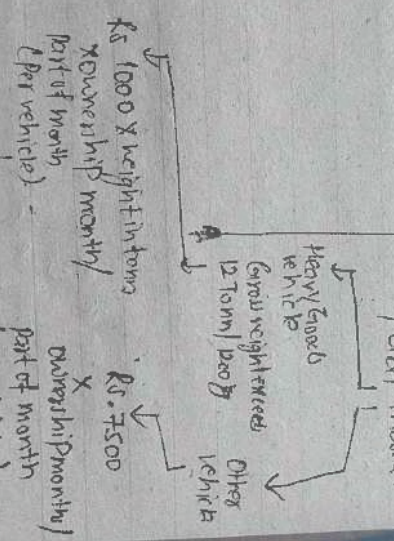 Heavy Goods
vehicle
Gross weight exceeds
12 Tonn/
Other
vehicle
Rs 1000 x weight in tonns
x ownership month/
part of month
(per vehicle)
Rs. 7500
x
ownership month/
part of month